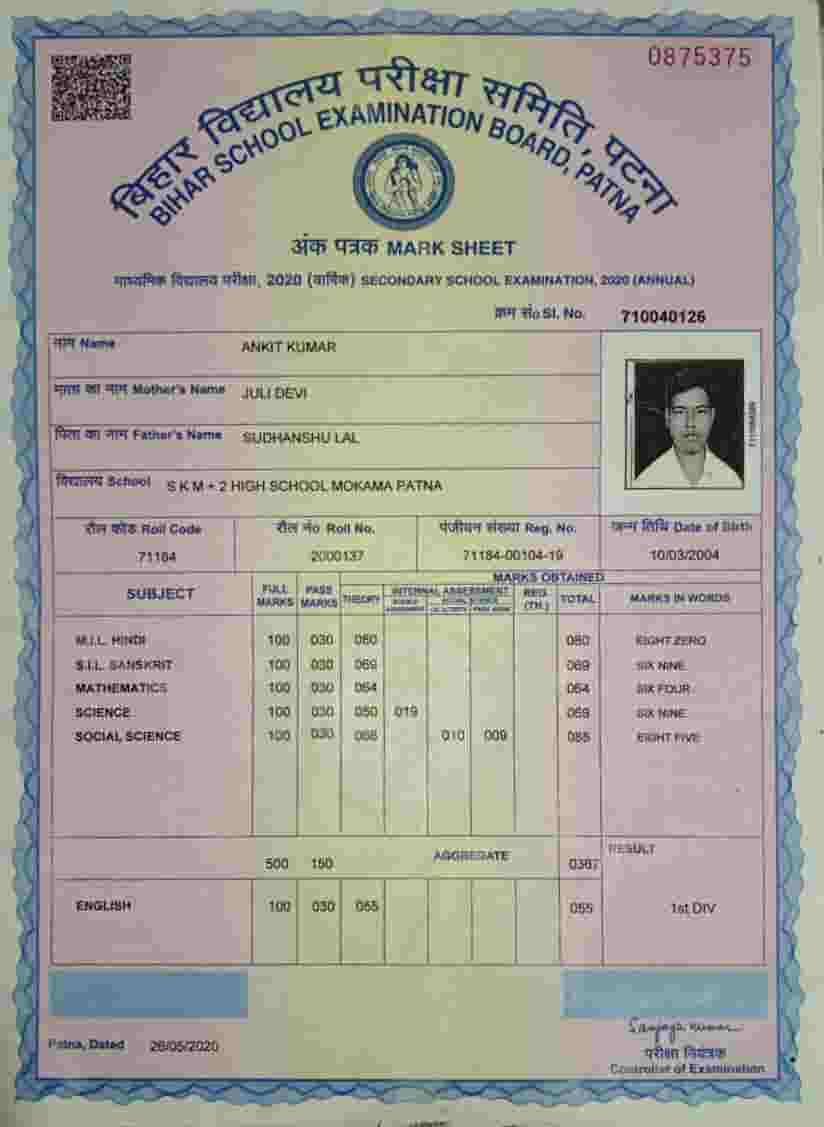 0875375
बिहार विद्यालय परीक्षा समिति, पटना
BIHAR SCHOOL EXAMINATION BOARD, PATNA
अंक पत्रक MARK SHEET
माध्यमिक विद्यालय परीक्षा, 2020 (वार्षिक) SECONDARY SCHOOL EXAMINATION, 2020 (ANNUAL)
क्रम सं० Sl. No. 710040126
नाम Name ANKIT KUMAR
माता का नाम Mother's Name JULI DEVI
पिता का नाम Father's Name SUDHANSHU LAL
विद्यालय School S K M + 2 HIGH SCHOOL MOKAMA PATNA
रौल कोड Roll Code रौल नं० Roll No. पंजीयन संख्या Reg. No. जन्म तिथि Date of Birth
71184 2000137 71184-00104-19 10/03/2004
MARKS OBTAINED
SUBJECT FULL MARKS PASS MARKS THEORY INTERNAL ASSESSMENT REG (TH.) TOTAL MARKS IN WORDS
M.I.L. HINDI 100 030 080 080 EIGHT ZERO
S.I.L. SANSKRIT 100 030 069 069 SIX NINE
MATHEMATICS 100 030 064 064 SIX FOUR
SCIENCE 100 030 050 019 069 SIX NINE
SOCIAL SCIENCE 100 030 066 010 009 085 EIGHT FIVE
500 150 AGGREGATE 0367 RESULT
ENGLISH 100 030 055 055 1st DIV
Patna, Dated 26/05/2020
Sanjay Kumar
परीक्षा नियंत्रक
Controller of Examination